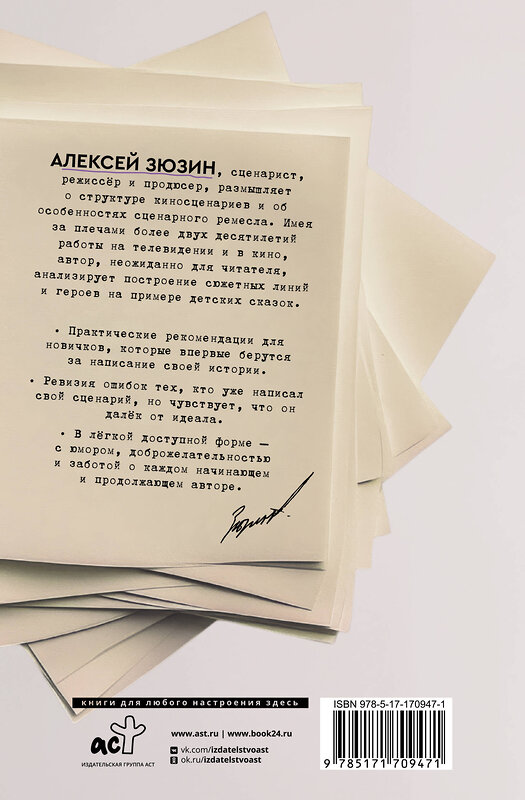 АЛЕКСЕЙ ЗЮЗИН, сценарист,
режиссёр и продюсер, размышляет
о структуре киносценариев и об
особенностях сценарного ремесла. Имея
за плечами более двух десятилетий
работы на телевидении и в кино,
автор, неожиданно для читателя,
анализирует построение сюжетных линий
и героев на примере детских сказок.
• Практические рекомендации для
новичков, которые впервые берутся
за написание своей истории.
• Ревизия ошибок тех, кто уже написал
свой сценарий, но чувствует, что он
далёк от идеала.
• В лёгкой доступной форме —
с юмором, доброжелательностью
и заботой о каждом начинающем
и продолжающем авторе.
книги для любого настроения здесь
аст
ИЗДАТЕЛЬСКАЯ ГРУППА АСТ
www.ast.ru | www.book24.ru
vk.com/izdatelstvoast
ok.ru/izdatelstvoast
ISBN 978-5-17-170947-1
9 785171 709471